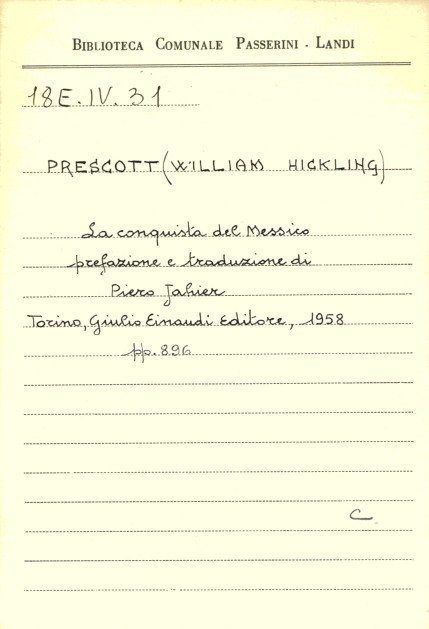 BIBLIOTECA COMUNALE PASSERINI - LANDI
18E. IV. 31
PRESCOTT (WILLIAM HICKLING)
La conquista del Messico
prefazione e traduzione di
Piero Jahier
Torino, Giulio Einaudi Editore, 1958
pp. 896
C